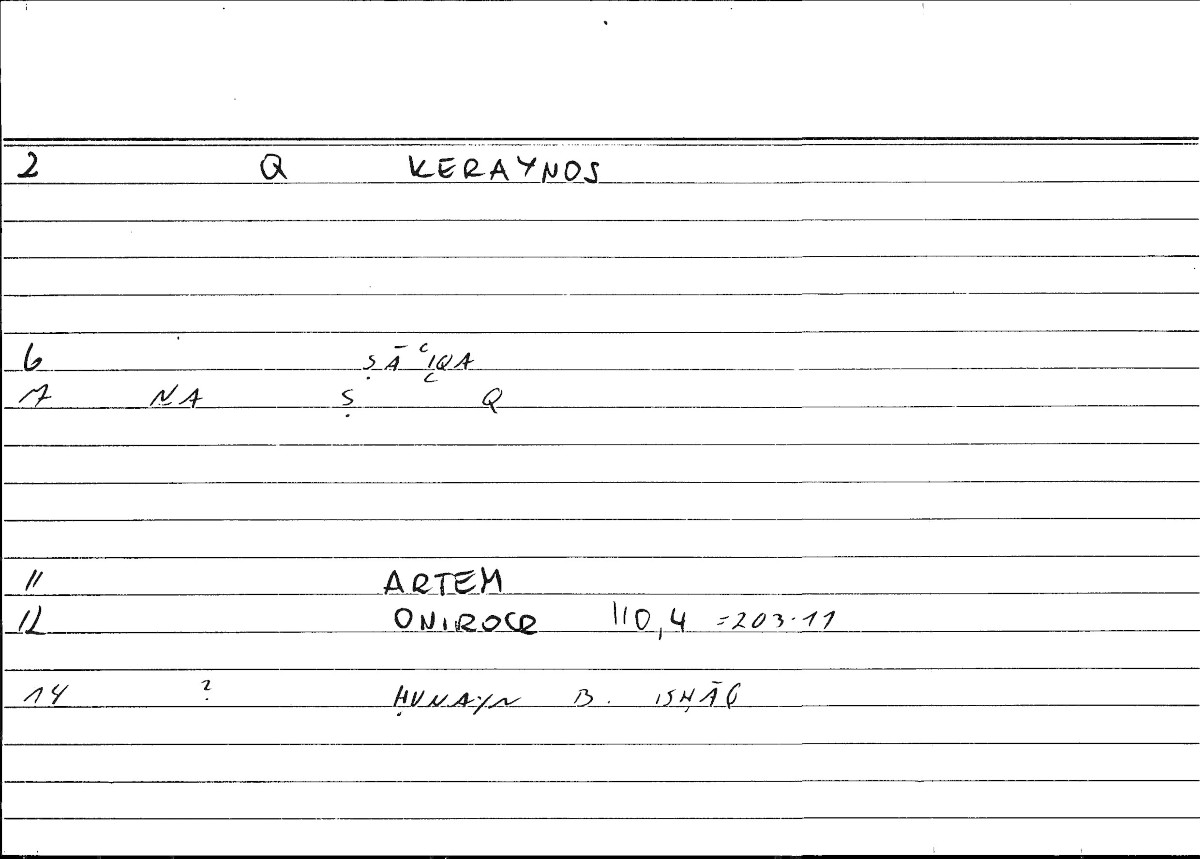 2 Q KERAYNOS
6 ṢĀʿIQA
7 NA Ṣ Q
11 ARTEM
12 ONIROCR 110,4 =203.11
14 ? ḤUNAYN B. ISḤĀQ